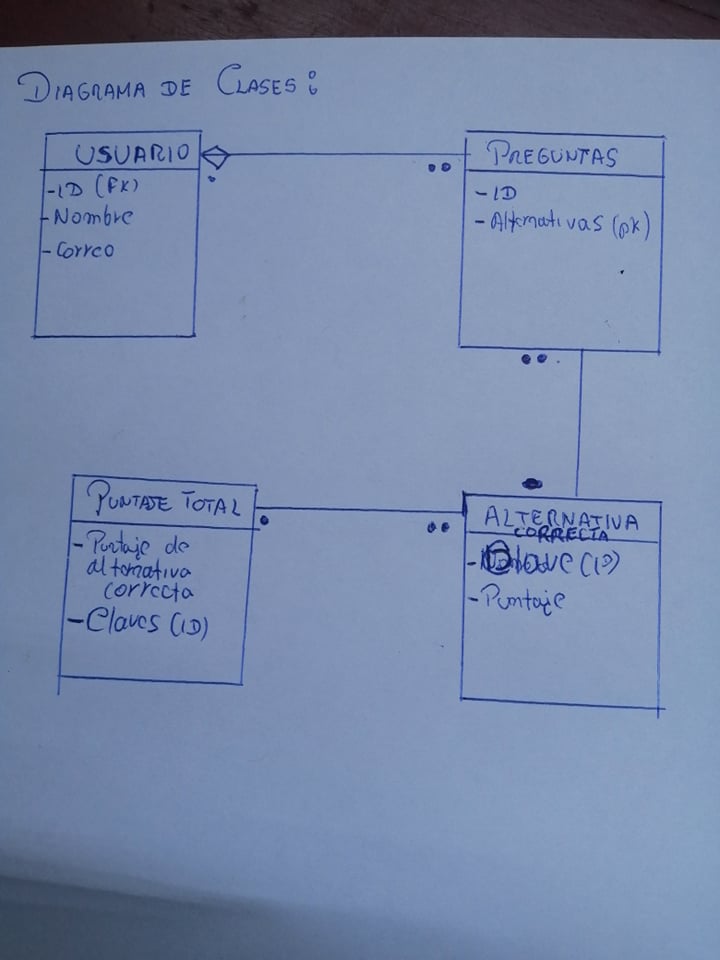 DIAGRAMA DE CLASES:
USUARIO
- ID (PK)
- Nombre
- Correo
PREGUNTAS
- ID
- Alternativas (pk)
PUNTAJE TOTAL
- Puntaje de
alternativa
correcta
- Claves (ID)
ALTERNATIVA
CORRECTA
- Clave (ID)
- Puntaje